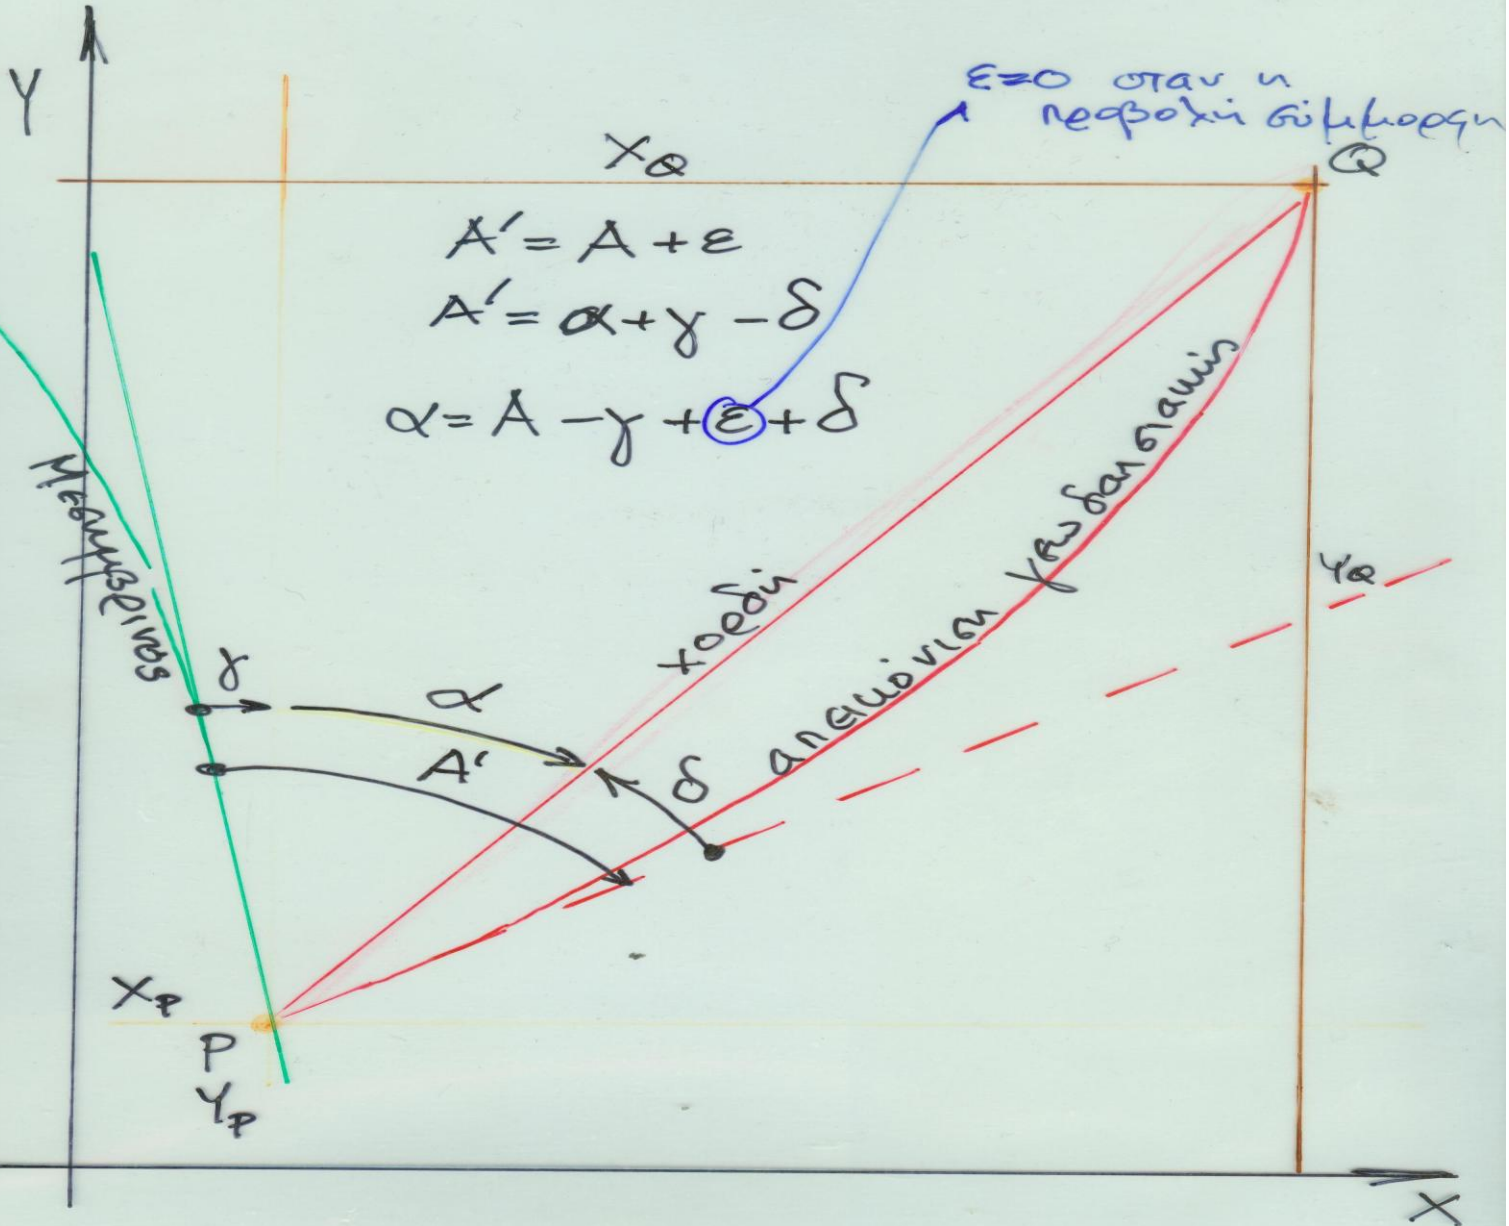 Y
ε=0 οταν η
προβολή σύμμορφη
X_Q
Q
A' = A + ε
A' = α + γ - δ
α = A - γ + ε + δ
Μεσημβρινος
χορδή
απεικόνιση γεωδαισιακής
Y_Q
γ
α
A'
δ
X_P
P
Y_P
X